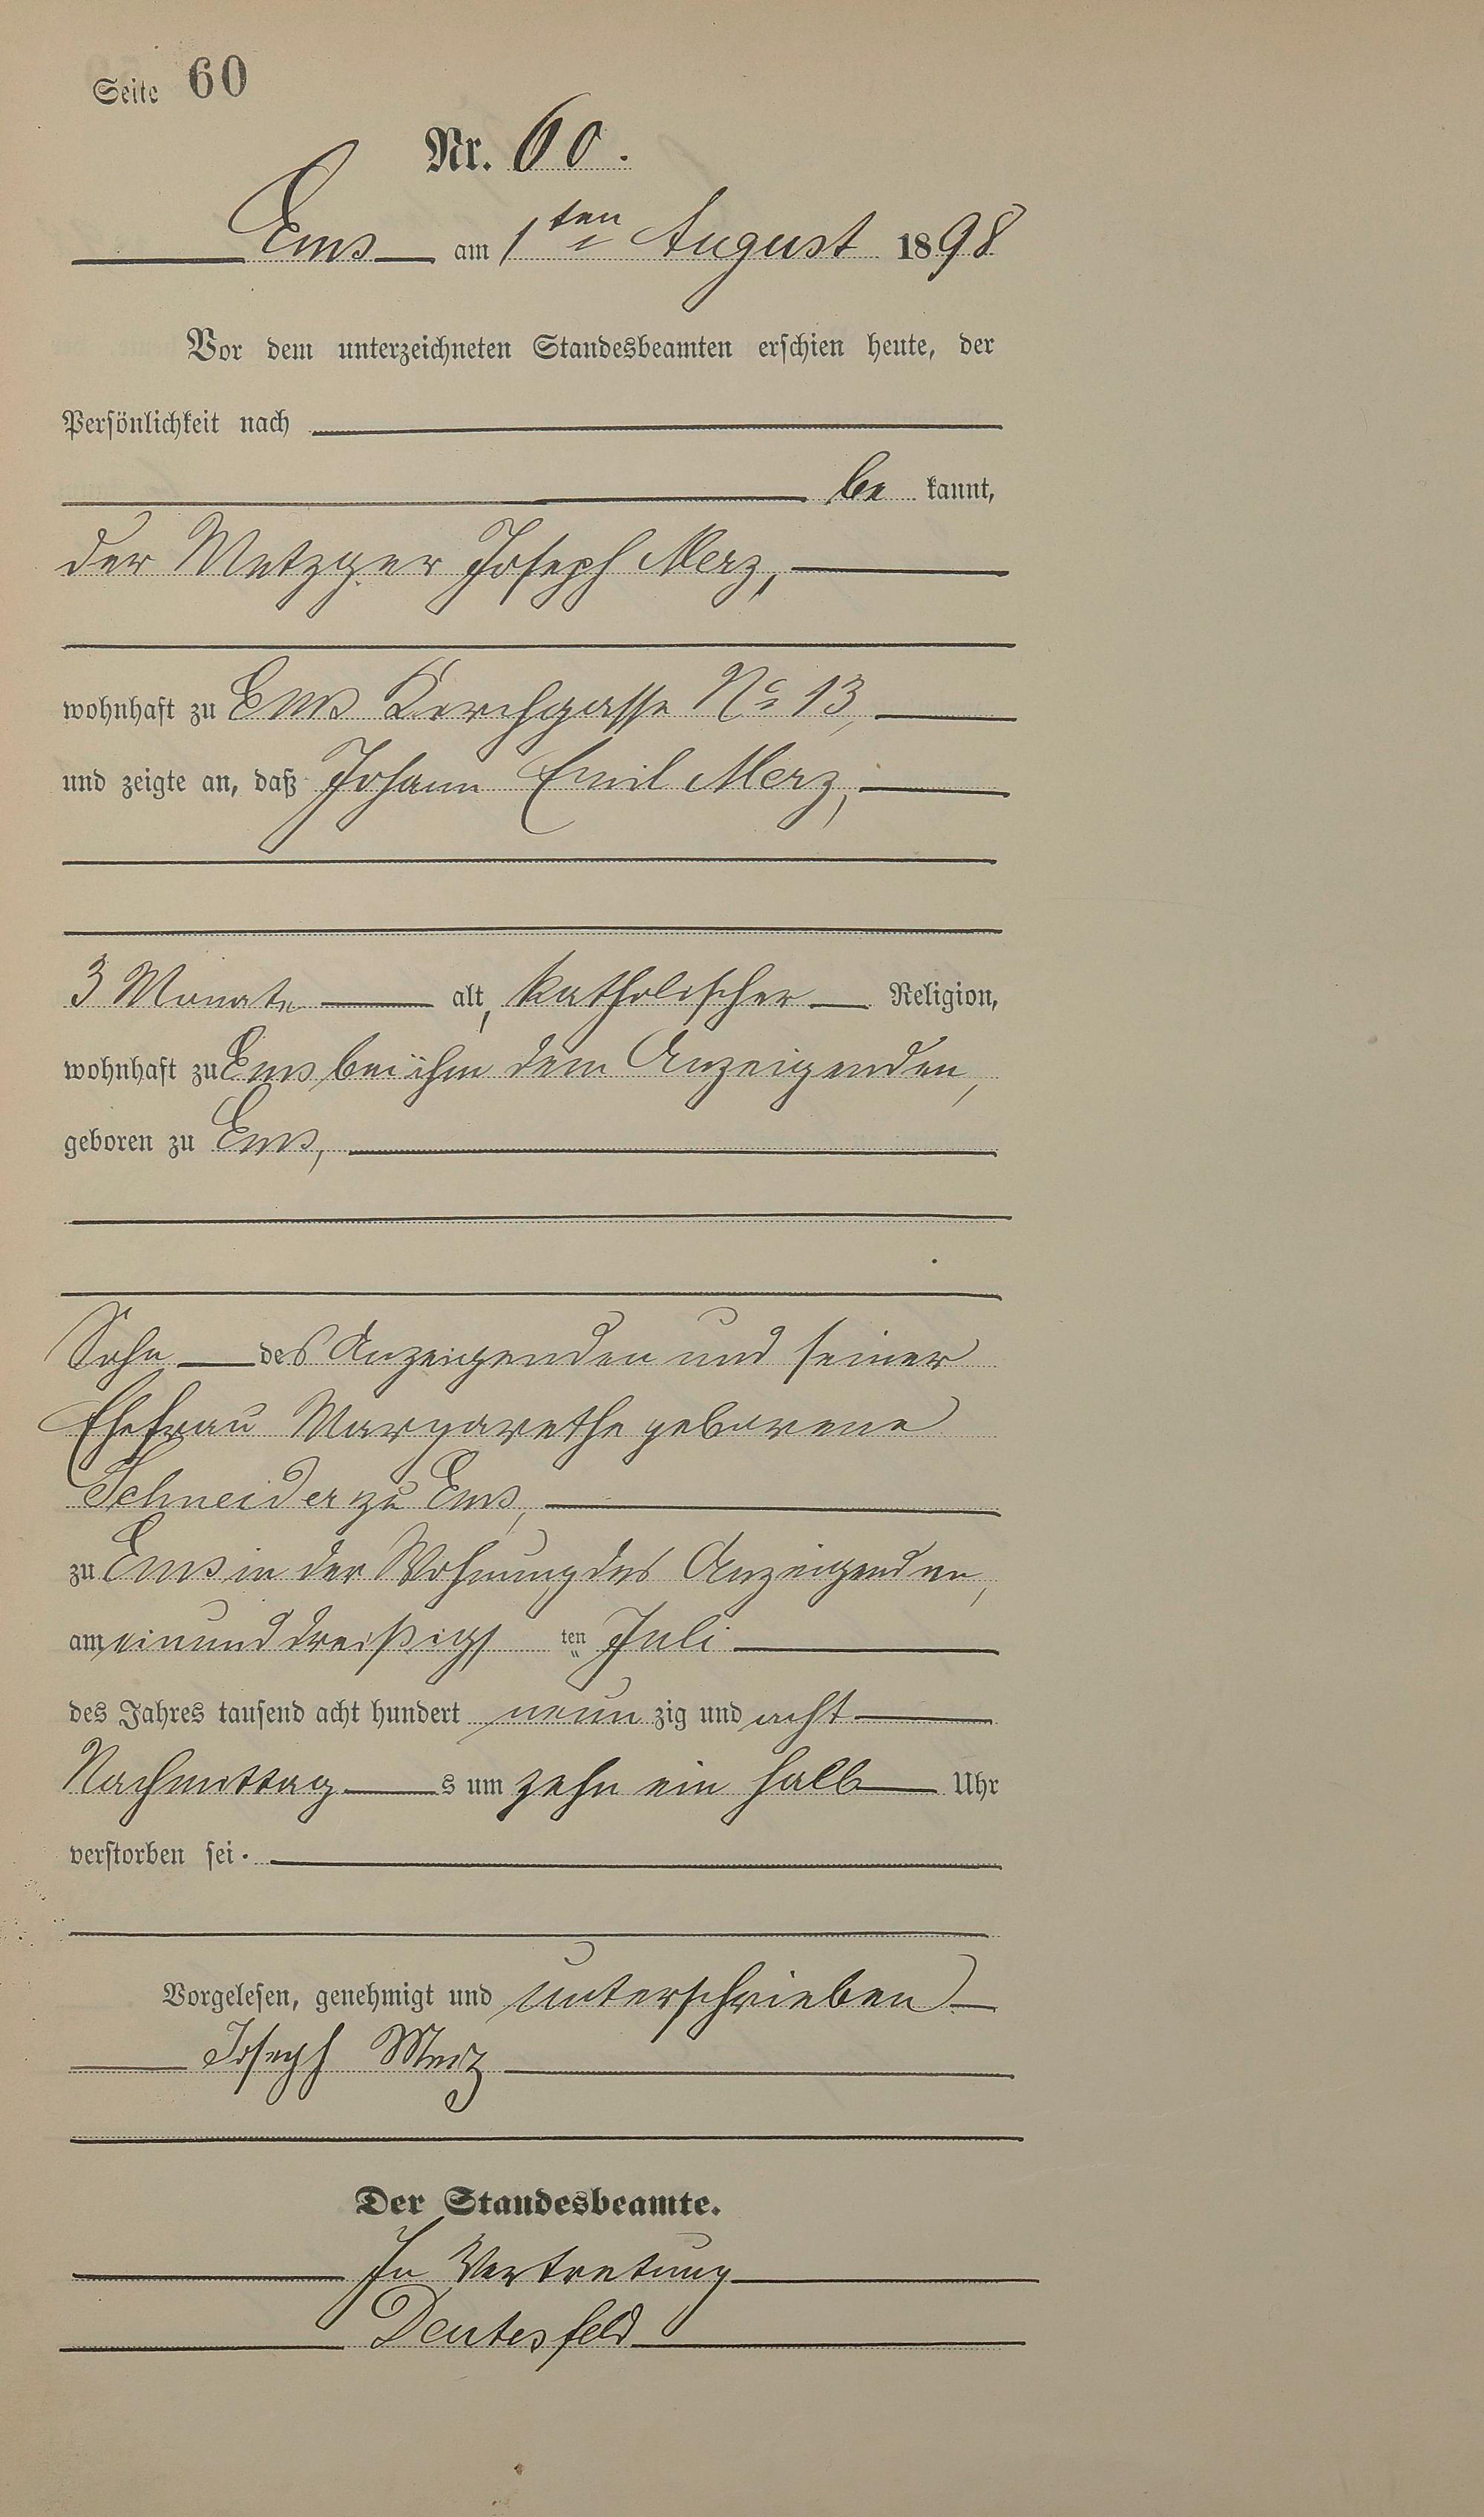 Seite 60
Nr. 60.
Ems am 1ten August 1898
Vor dem unterzeichneten Standesbeamten erschien heute, der
Persönlichkeit nach
be kannt,
der Metzger Joseph Merz,
wohnhaft zu Ems Kirchgasse No 13,
und zeigte an, daß Johann Emil Merz,
3 Monate alt, katholischer Religion,
wohnhaft zu Ems bei ihm dem Anzeigenden,
geboren zu Ems,
Sohn des Anzeigenden und seiner
Ehefrau Margarethe geborene
Schneider zu Ems,
zu Ems in der Wohnung des Anzeigenden,
am einunddreißigs ten Juli
des Jahres tausend acht hundert neun zig und acht
Nachmittag s um zehn ein halb Uhr
verstorben sei.
Vorgelesen, genehmigt und unterschrieben
Joseph Merz
Der Standesbeamte.
In Vertretung
Deutesfeld